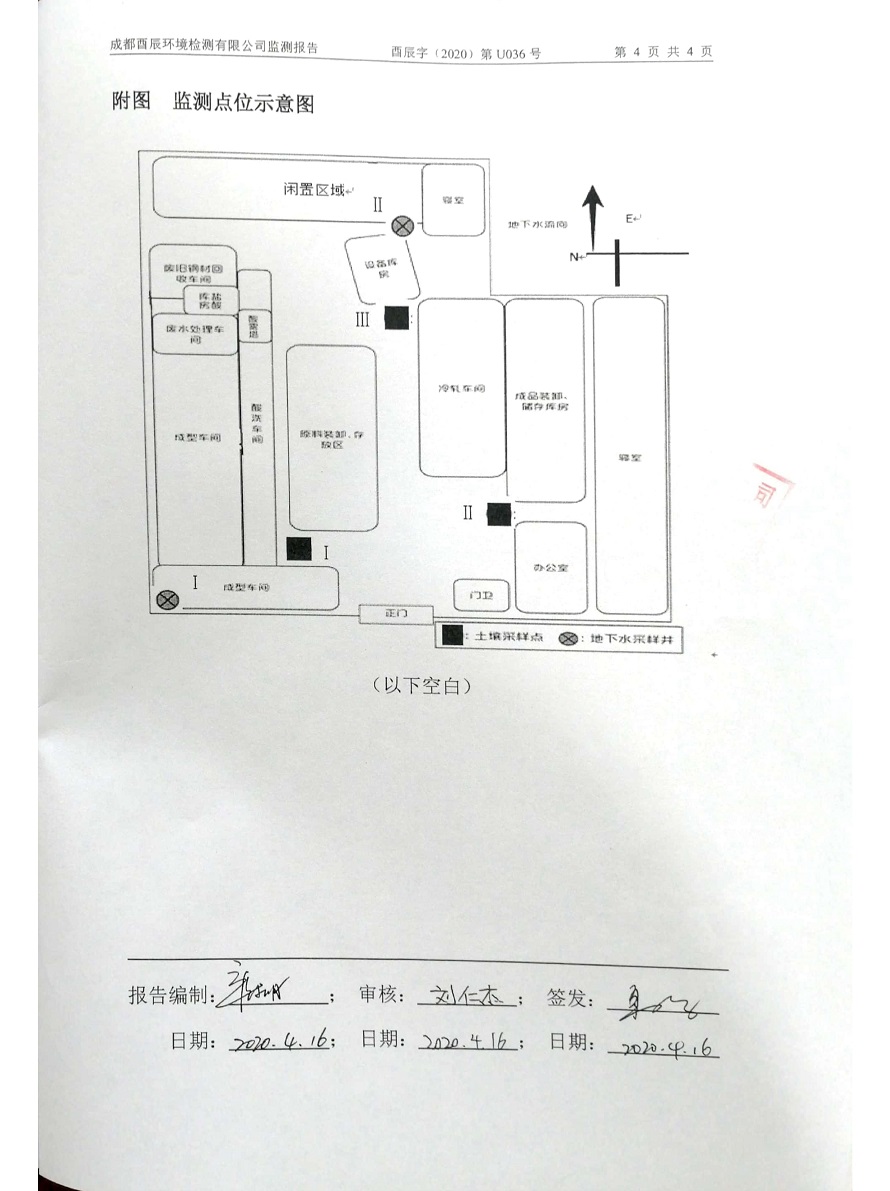 成都酉辰环境检测有限公司监测报告 酉辰字（2020）第 U036 号 第 4 页 共 4 页
附图 监测点位示意图
闲置区域
II
寝室
地下水流向
E
N
设备库
房
废旧钢材回
收车间
库盐
房酸
酸雾塔
废水处理车
间
III
:
冷轧车间
成品装卸、
储存库房
寝室
酸洗车间
成型车间
原料装卸、存
放区
II
:
I
办公室
I
成型车间
门卫
正门
: 土壤采样点 : 地下水采样井
（以下空白）
司
报告编制: ; 审核: 刘仁杰 ; 签发:
日期: 2020.4.16; 日期: 2020.4.16 ; 日期: 2020.4.16